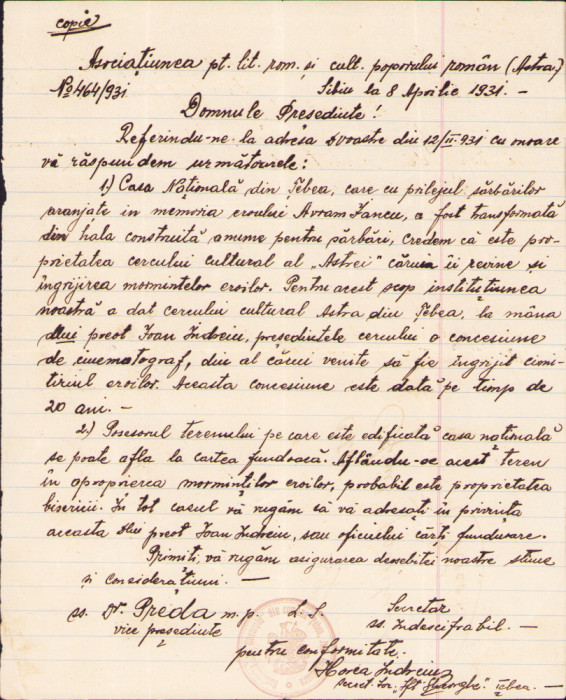 copie
Asociațiunea pt. lit. rom. și cult. poporului român (Astra.)
No 464/931 Sibiu la 8 Aprilie 1931. -
Domnule Președinte!
Referindu-ne la adresa Dvoastre din 12/II.931 cu onoare
vă răspundem următoarele:
1.) Casa Națională din Țebea, care cu prilejul sărbărilor
aranjate in memoria eroului Avram Iancu, a fost transformată
din hala construită anume pentru sărbări, credem că este pro-
prietatea cercului cultural al „Astrei” căruia îi revine și
îngrijirea mormintelor eroilor. Pentru acest scop instituțiunea
noastră a dat cercului cultural Astra din Țebea, la mâna
dlui preot Ioan Indreiu, președintele cercului o concesiune
de cinematograf, din al cărui venite să fie îngrijit cimi-
tiriul eroilor. Aceasta concesiune este dată pe timp de
20 ani. -
2.) Posesorul terenului pe care este edificată casa națională
se poate afla la cartea funduacă. Aflându-se acest teren
în aproprierea morminților eroilor, probabil este proprietatea
bisericii. În tot casul vă rugăm să vă adresați în privința
aceasta Dlui preot Ioan Indreiu, sau oficiului cărți funduare.
Primiți, vă rugăm asigurarea deosebitei noastre stime
și considerațiuni. -
ss. Dr. Preda m.p. L.S. Secretar
vice președinte ss. Indescifrabil. -
pentru conformitate.
Horea Indreiu
"Sft Gheorghe" Țebea. -